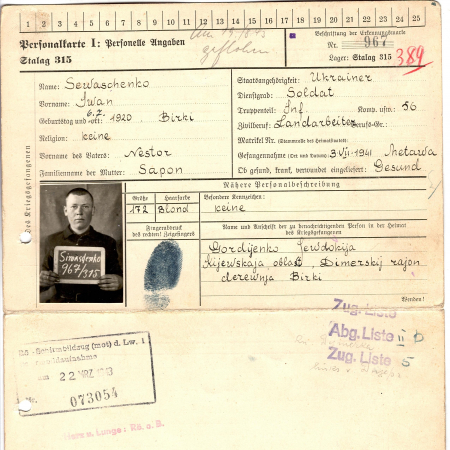 1 2 3 4 5 6 7 8 9 10 11 12 13 14 15 16 17 18 19 20 21 22 23 24 25
Personalkarte I: Personelle Angaben
Am
geflohen
Beschriftung der Erkennungsmarke
Nr. 967
Stalag 315
Lager: Stalag 315
389
Des Kriegsgefangenen
Name: Sewaschenko
Vorname: Iwan
6.7.
Geburtstag und -ort: 1920, Birki
Religion: keine
Vorname des Vaters: Nestor
Familienname der Mutter: Sapon
Staatsangehörigkeit: Ukrainer
Dienstgrad: Soldat
Truppenteil: Inf. Komp. usw. 56
Zivilberuf: Landarbeiter Berufs-Gr.:
Matrikel Nr. (Stammrolle des Heimatstaates):
Gefangennahme (Ort und Datum): 3.VII.1941
Ob gesund, krank, verwundet eingeliefert: Gesund
Nähere Personalbeschreibung
Größe Haarfarbe Besondere Kennzeichen:
172 Blond keine
Fingerabdruck
des rechten! Zeigefingers
Name und Anschrift der zu benachrichtigenden Person in der Heimat
des Kriegsgefangenen
Gordijenko Jewdokija
Kijewskaja oblast, Dimerskij rajon
derewnja Birki
Wenden!
967/315
Zug. Liste
Abg. Liste II
Zug. Liste 5
(mot) d. Lw. 1
22. MRZ 1943
Nr. 073054